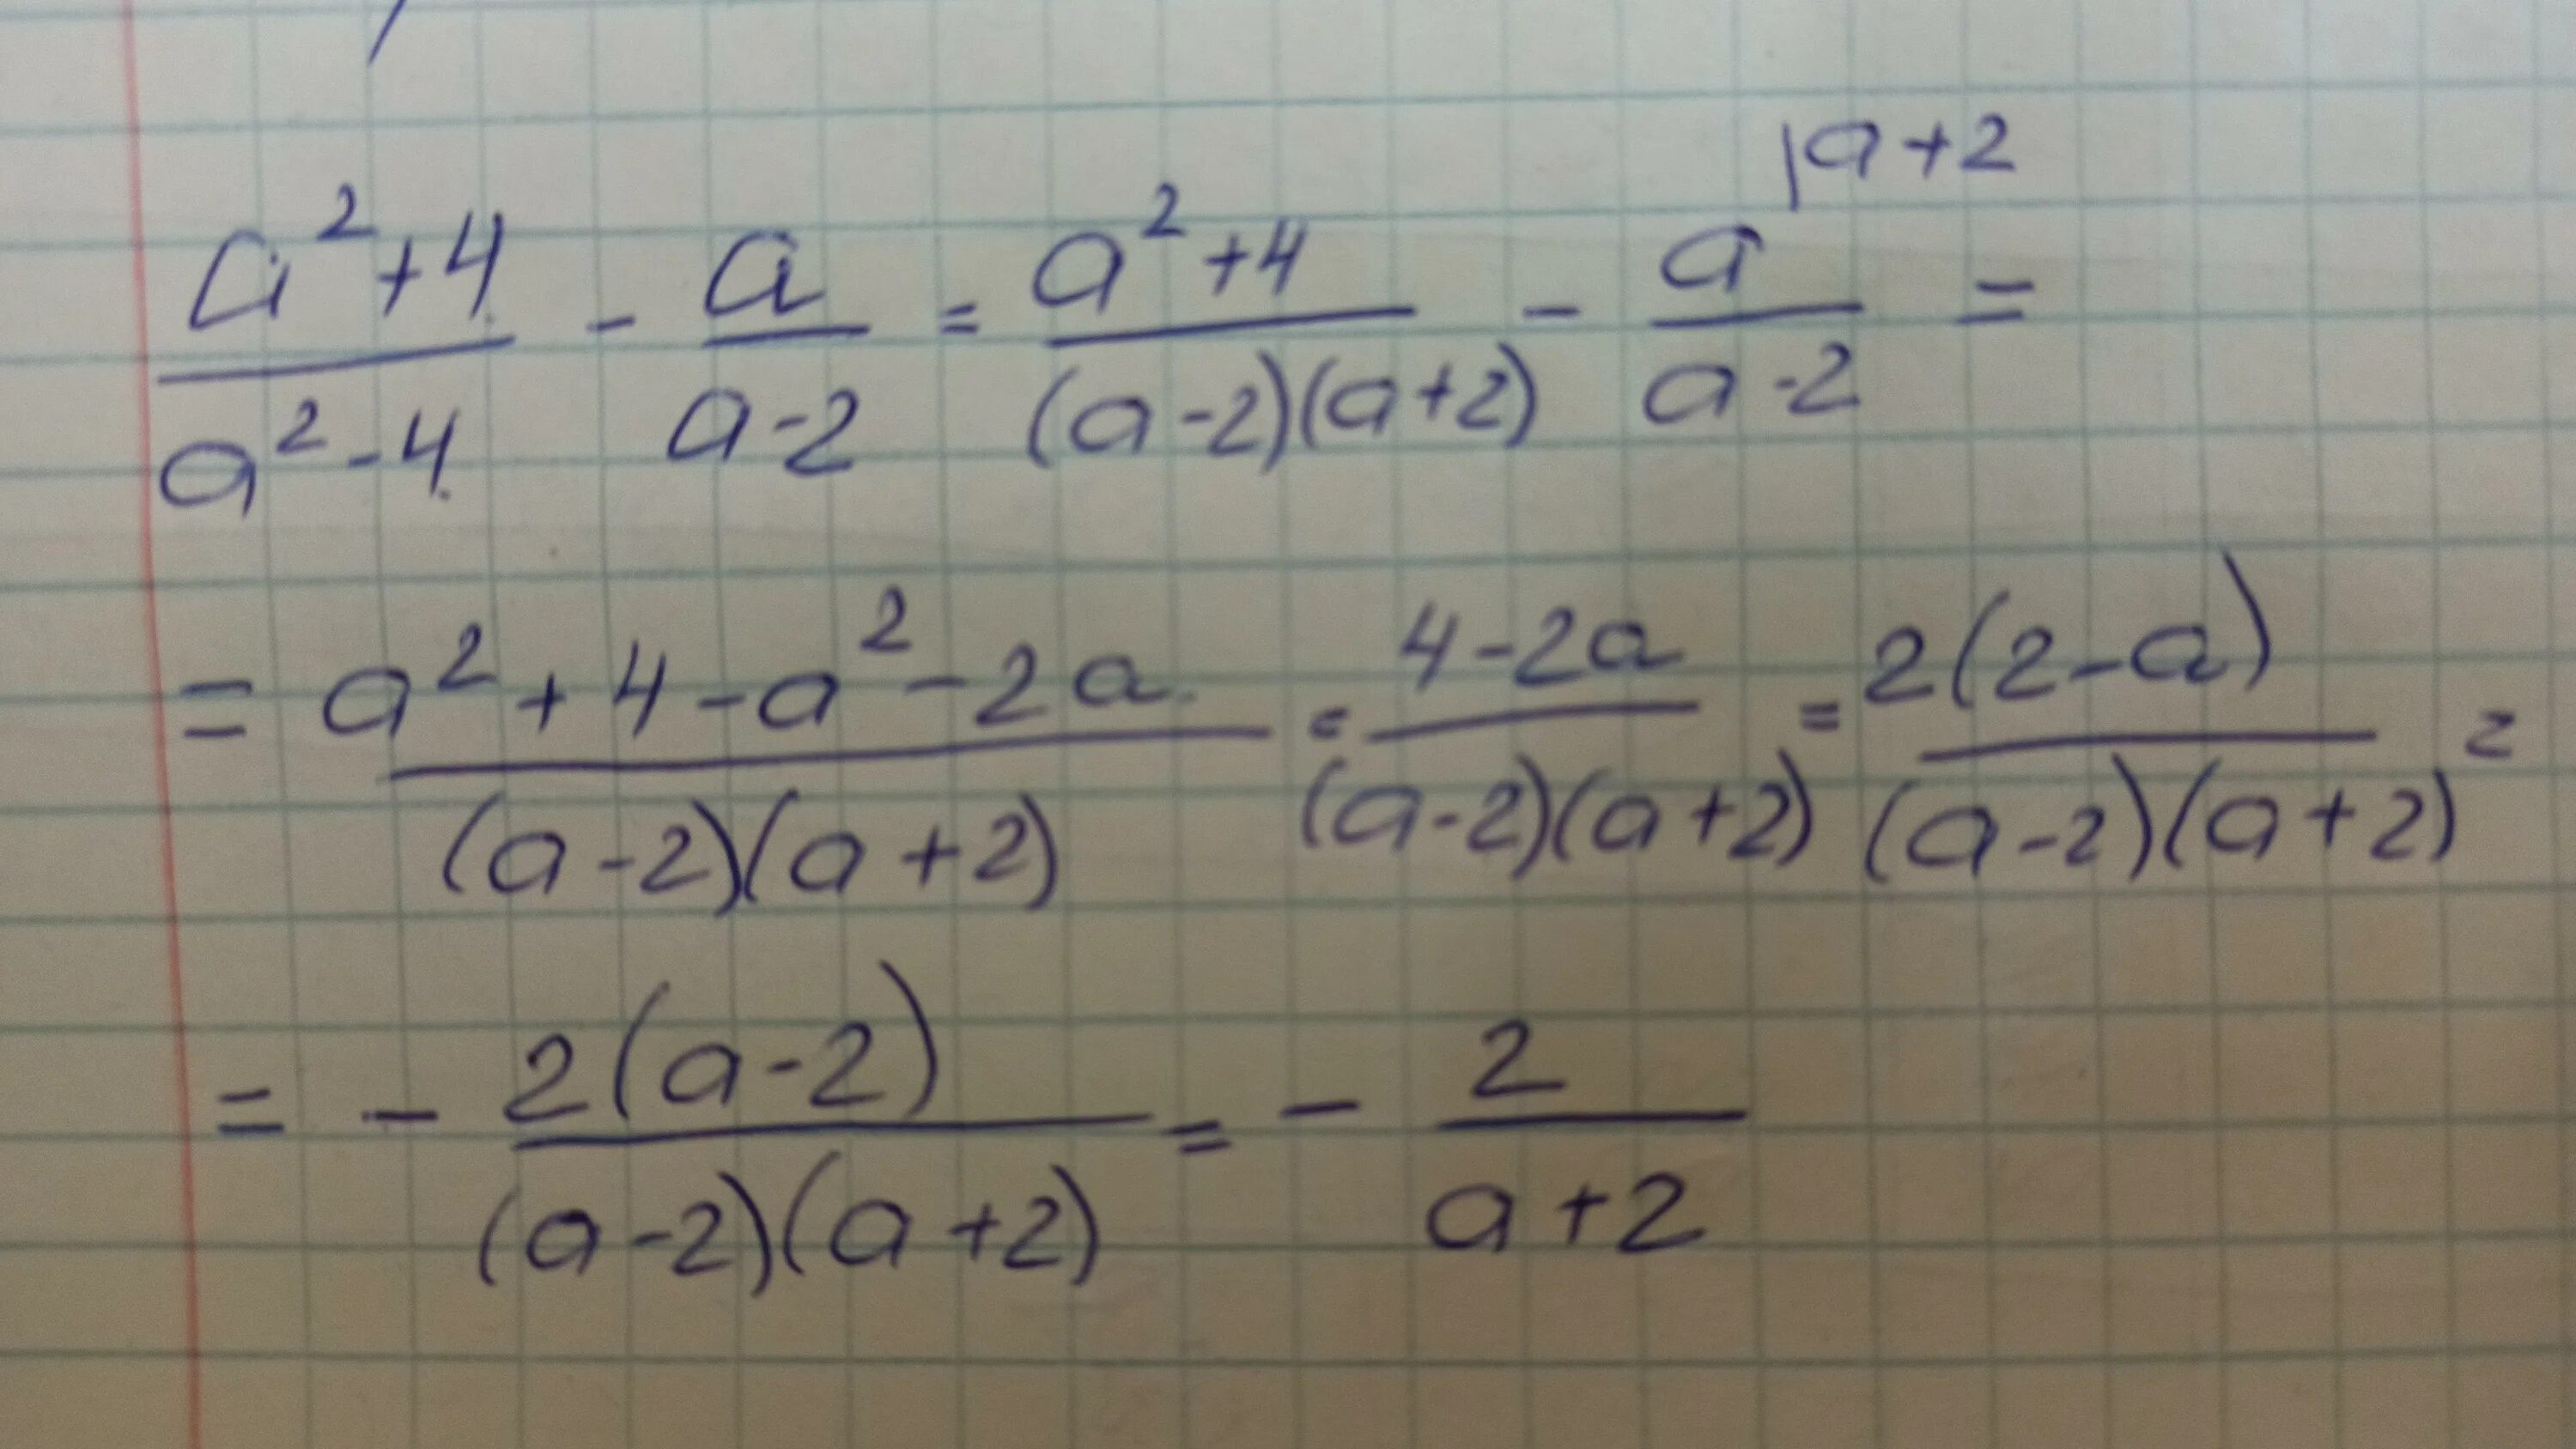 (a²+4)/(a²-4) - a/(a-2) = (a²+4)/((a-2)(a+2)) - a|a+2/(a-2) =
= (a²+4-a²-2a)/((a-2)(a+2)) = (4-2a)/((a-2)(a+2)) = 2(2-a)/((a-2)(a+2)) =
= - 2(a-2)/((a-2)(a+2)) = - 2/(a+2)